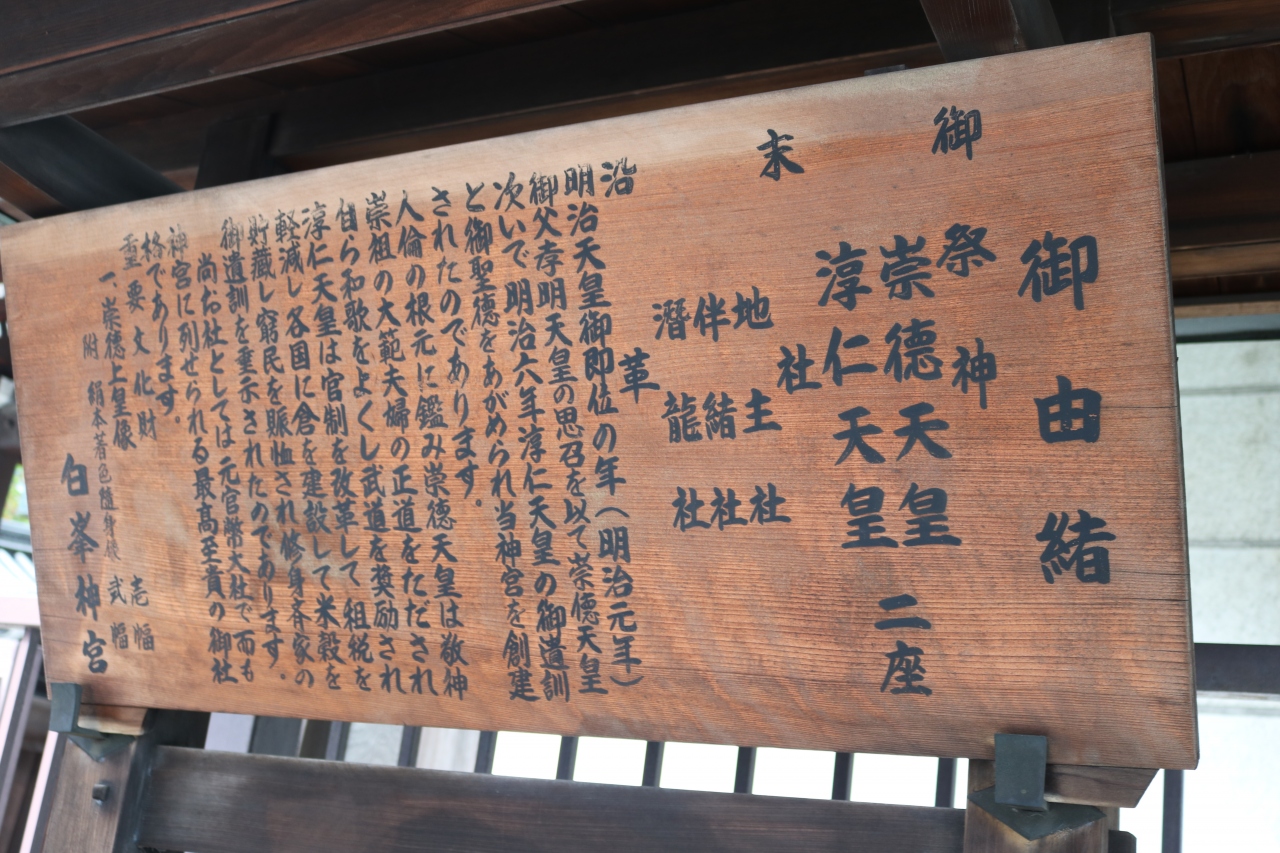 御由緒
御祭神
崇德天皇
淳仁天皇 二座
末社
地主社
伴緒社
潛龍社
沿革
明治天皇御即位の年(明治元年)
御父孝明天皇の思召を以て崇德天皇
次いで明治六年淳仁天皇の御遺訓
と御聖德をあがめられ当神宮を創建
されたのであります。
人倫の根元に鑑み崇德天皇は敬神
崇祖の大範夫婦の正道をたゞされ
自ら和歌をよくし武道を奨励され
淳仁天皇は官制を改革して租税を
軽減し各国に倉を建設して米穀を
貯藏し窮民を賑恤され修身斉家の
御遺訓を垂示されたのであります。
尚お社としては元官幣大社で而も
格であります。
神宮に列せられる最高至貴の御社
重要文化財
一、崇德上皇像 壱幅
附 絹本著色随身像 弐幅
白峯神宮